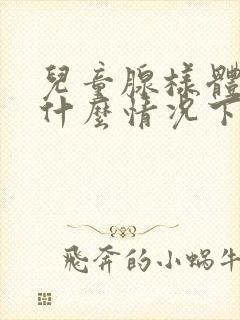 兒童腺樣體
什麼情況下
飛奔的小蝸牛